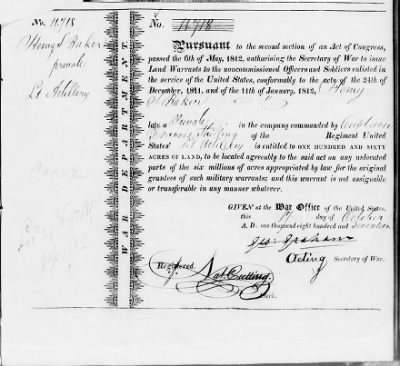 No. 11,918
Henry S Baker
private
Lt Artillery
WAR DEPARTMENT
No. 11918
Pursuant to the second section of an Act of Congress,
passed the 6th of May, 1812, authorising the Secretary of War to issue
Land Warrants to the noncommissioned Officers and Soldiers enlisted in
the service of the United States, conformably to the acts of the 24th of
December, 1811, and of the 11th of January, 1812, Henry
S Baker
late a Private in the company commanded by Captain
of the Regiment United
States' Lt Artillery is entitled to ONE HUNDRED AND SIXTY
ACRES OF LAND, to be located agreeably to the said act on any unlocated
parts of the six millions of acres appropriated by law for the original
grantees of such military warrants; and this warrant is not assignable
or transferable in any manner whatever.
GIVEN at the War Office of the United States,
this day of October
A. D. one thousand eight hundred and Seventeen
Geo: Graham
Acting Secretary of War.
Registered
Nat. Cutting
Clerk.